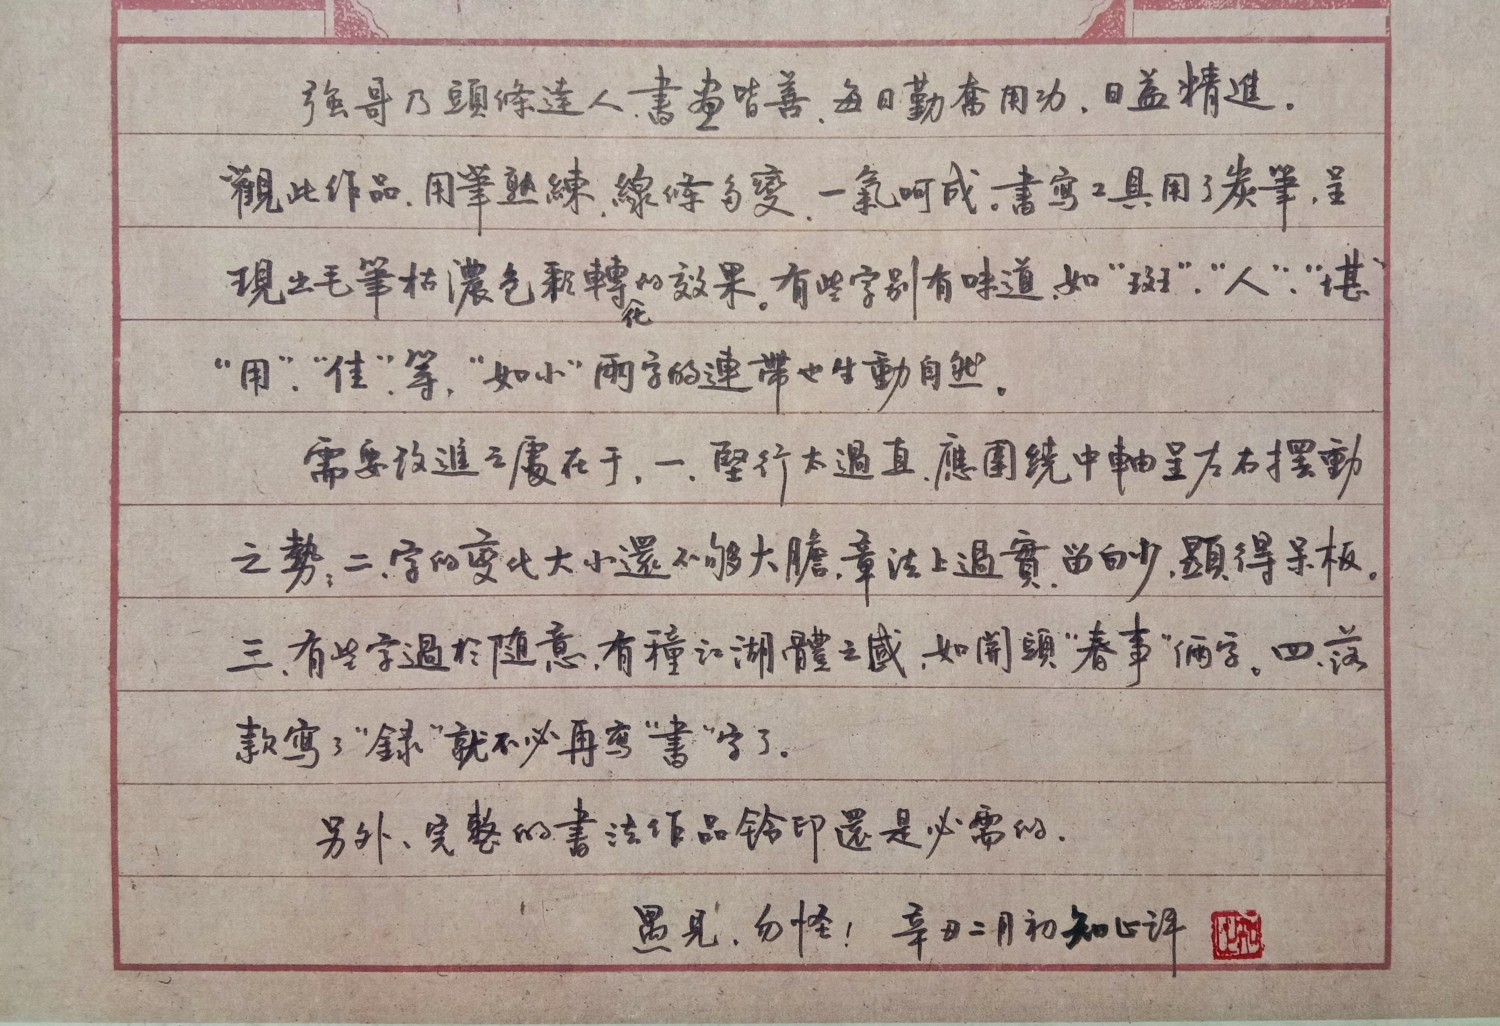 強哥乃頭條達人、書畫皆善、每日勤奮用功，日益精進。
觀此作品，用筆熟練，線條多變，一氣呵成。書寫工具用了炭筆，呈
現出毛筆枯濃色彩轉化的效果。有些字别有味道，如“斑”、“人”、“堪”
“用”、“佳”等，“如小”兩字的連帶也生動自然。
需要改進之處在于，一、竪行太過直，應圍繞中軸呈左右擺動
之勢；二、字的變化大小還不够大膽，章法上過實，留白少，顯得呆板。
三、有些字過於随意，有種江湖體之感，如開頭“春事”倆字。四、落
款寫了“録”就不必再寫“書”字了。
另外、完整的書法作品鈐印還是必需的．
愚見，勿怪！ 辛丑二月初 知止評
知止